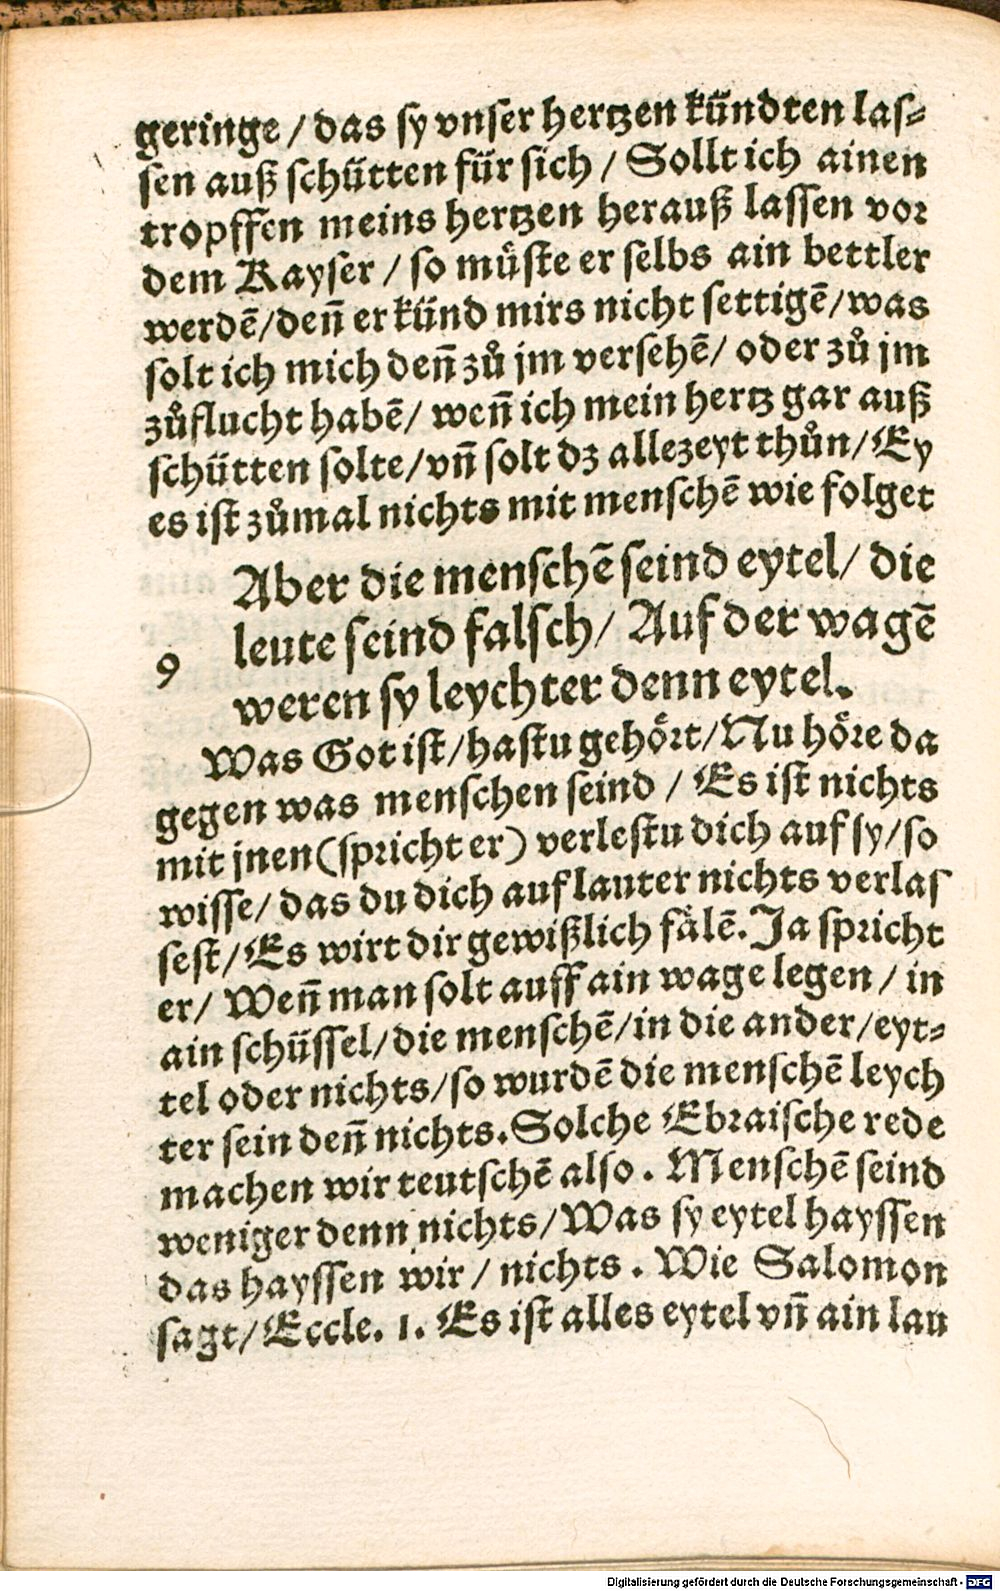 geringe / das sy vnser hertzen kündten las⸗
sen auß schütten für sich / Sollt ich ainen
tropffen meins hertzen herauß lassen vor
dem Kayser / so müste er selbs ain bettler
werdē/denn̄ er künd mirs nicht settigē/was
solt ich mich denn̄ zů jm versehē/ oder zů jm
zůflucht habē/ wenn̄ ich mein hertz gar auß
schütten solte/vnn̄ solt dz allezeyt thůn/Ey
es ist zůmal nichts mit menschē wie folget
Aber die menschē seind eytel/ die
leute seind falsch/ Auf der wagē
9 weren sy leychter denn eytel.
Was Got ist/hastu gehört/Nu höre da
gegen was menschen seind / Es ist nichts
mit jnen(spricht er) verlestu dich auf sy/so
wisse/ das du dich auf lauter nichts verlas
sest/Es wirt dir gewißlich fälē. Ja spricht
er/ Wenn̄ man solt auff ain wage legen / in
ain schüssel/die menschē/in die ander/eyt⸗
tel oder nichts/so wurdē die menschē leych
ter sein denn̄ nichts. Solche Ebraische rede
machen wir teutschē also. Menschē seind
weniger denn nichts/Was sy eytel hayssen
das hayssen wir / nichts. Wie Salomon
sagt/Eccle. 1. Es ist alles eytel vnn̄ ain lau
Digitalisierung gefördert durch die Deutsche Forschungsgemeinschaft - DFG